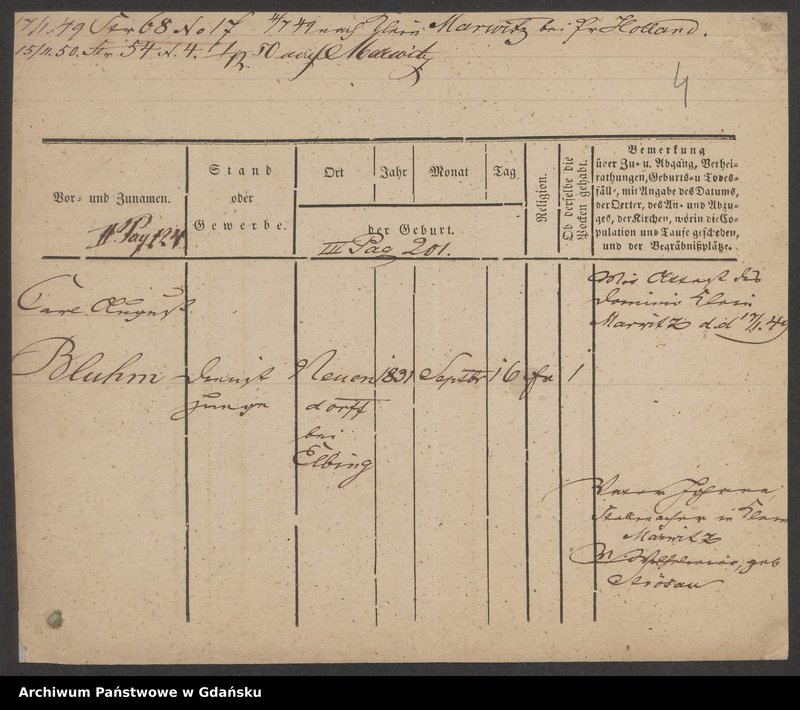 17/1. 49 Str 68 No 17 4/7 49 nach Klein Marwitz bei Pr Holland.
15/11. 50. Str 54 N. 4. 50 auf Marwitz
4
Vor- und Zunamen.
Stand
oder
Gewerbe.
Ort
Jahr
Monat
Tag
der Geburt.
Religion.
Ob derselbe die
Pocken gehabt.
Bemerkung
über Zu- u. Abgang, Verhei-
rathungen, Geburts- u Todes-
fäll, mit Angabe des Datums,
der Oerter, des An- und Abzu-
ges, der Kirchen, worin die Co-
pulation und Taufe geschehen,
und der Begräbnißplätze.
II Pag 124
III Pag 201.
Carl August
Bluhm
Dienst
junge
Neuen
dorff
bei
Elbing
1831
Septbr
16
ev
1
Attest des
Dominii Klein
Marwitz d.d 17/1. 49
Vater Johann,
Stellmacher in Klein
Marwitz
M. Wilhelmine, geb